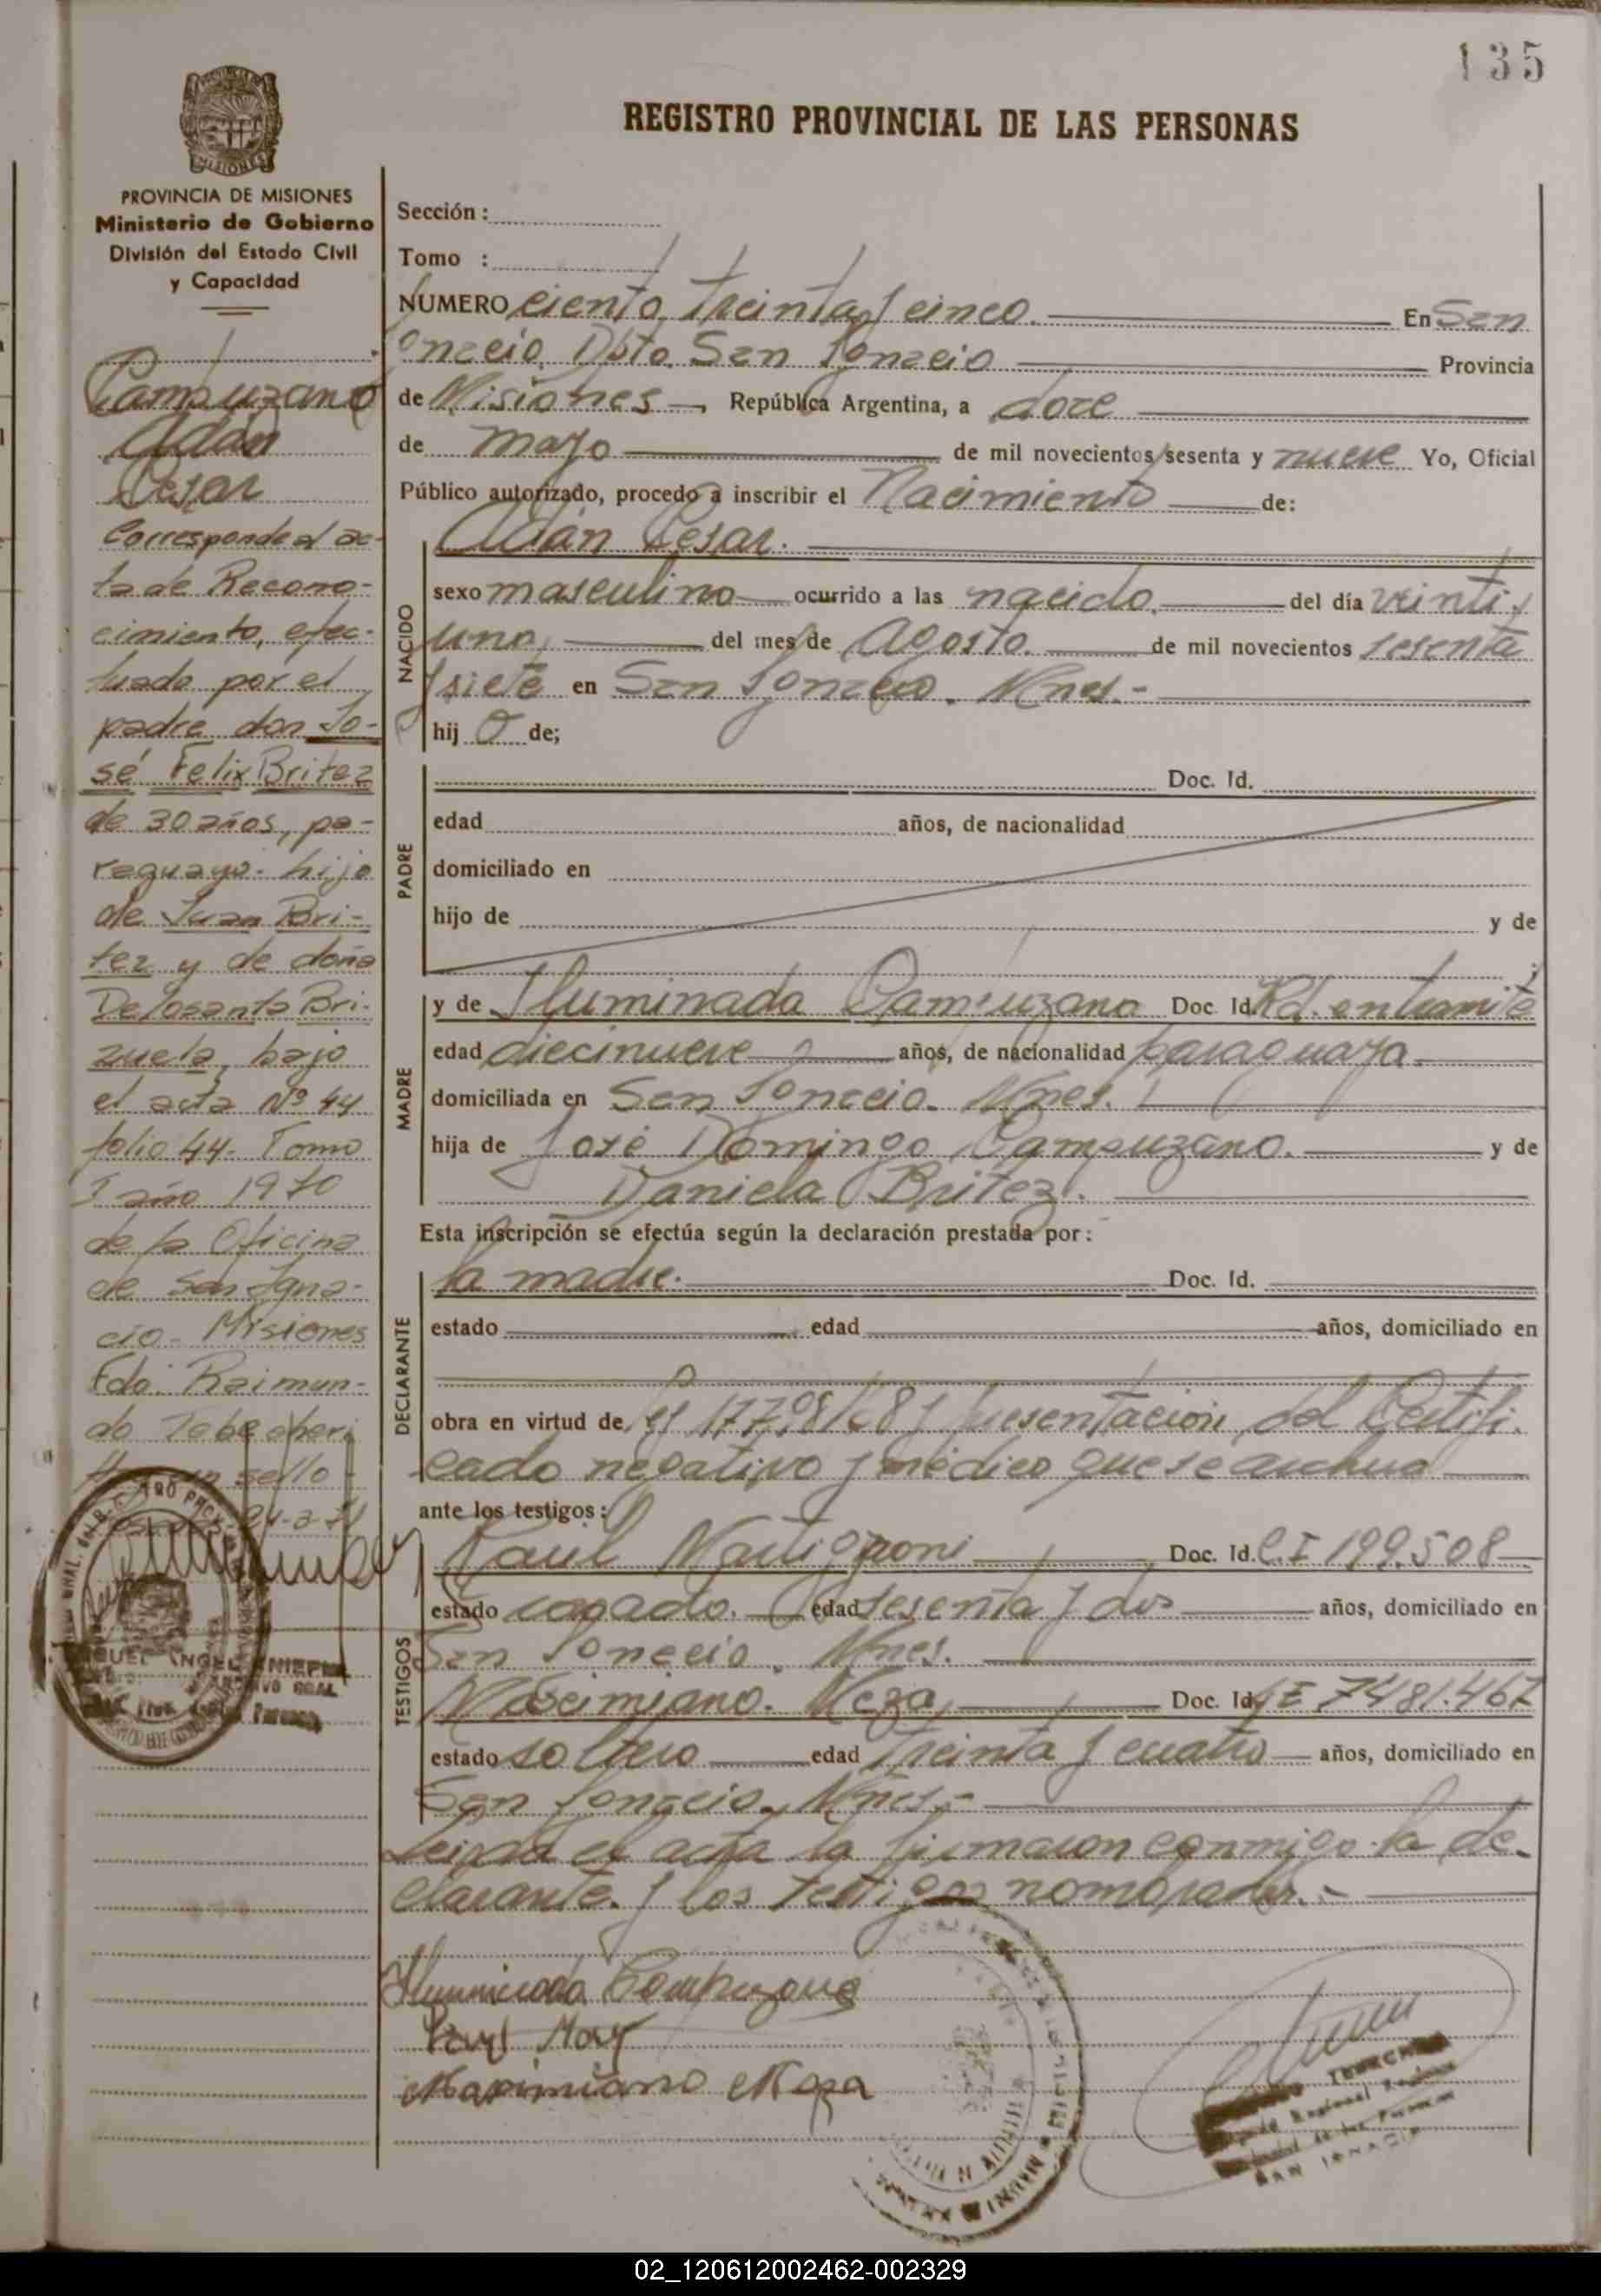 135
REGISTRO PROVINCIAL DE LAS PERSONAS
PROVINCIA DE MISIONES
Ministerio de Gobierno
División del Estado Civil
y Capacidad
Campuzano
Adán
Cesar
Corresponde al ac-
ta de Recono-
cimiento, efec-
tuada por el
padre don Jo-
sé Felix Britez
de 30 años, pa-
raguayo. hijo
de Juan Bri-
tez y de doña
Delosanta Bri-
zuela, bajo
el acta Nº 44
folio 44. Tomo
I año 1970
de la Oficina
de San Igna-
cio. Misiones
Fdo. Raimun-
do
sello
Sección :
Tomo :
NUMERO ciento treinta y cinco. En San
Ignacio, Dpto. San Ignacio Provincia
de Misiones, República Argentina, a doce
de mayo de mil novecientos sesenta y nueve Yo, Oficial
Público autorizado, procedo a inscribir el Nacimiento de:
NACIDO
Adán Cesar.
sexo masculino ocurrido a las nacido, del día veinti
uno, del mes de Agosto. de mil novecientos sesenta
y siete en San Ignacio. Mnes.-
hij o de;
PADRE
Doc. Id.
edad años, de nacionalidad
domiciliado en
hijo de y de
MADRE
y de Iluminada Campuzano Doc. Id. Rd. en tramite
edad diecinueve años, de nacionalidad paraguaya.
domiciliada en San Ignacio. Mnes.
hija de José Domingo Campuzano. y de
Daniela Britez.
Esta inscripción se efectúa según la declaración prestada por :
DECLARANTE
la madre. Doc. Id.
estado edad años, domiciliado en
obra en virtud de Ley 17708/68 y presentación del Certifi.
cado negativo y médico que se archiva
ante los testigos :
TESTIGOS
Raúl Martignoni Doc. Id. C.I 199.508
estado casado. edad sesenta y dos años, domiciliado en
San Ignacio. Mnes.
Maximiano. Meza, Doc. Id. LE 7481.467
estado soltero edad treinta y cuatro años, domiciliado en
San Ignacio, Mnes.-
Leida el acta la firmaron conmigo la de-
clarante. y los testigos nombrados.-
Iluminada Campuzano
Maximiano Meza
SAN IGNACIO
02_120612002462-002329